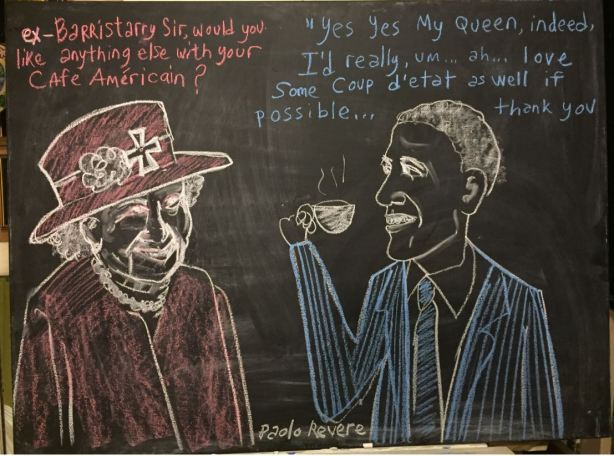 ex-Barristarry Sir, would you
like anything else with your
CAfe Américain?
"Yes Yes My Queen, indeed,
I'd really, um... ah... love
Some Coup d'etat as well if
possible... thank you
Paolo Revere